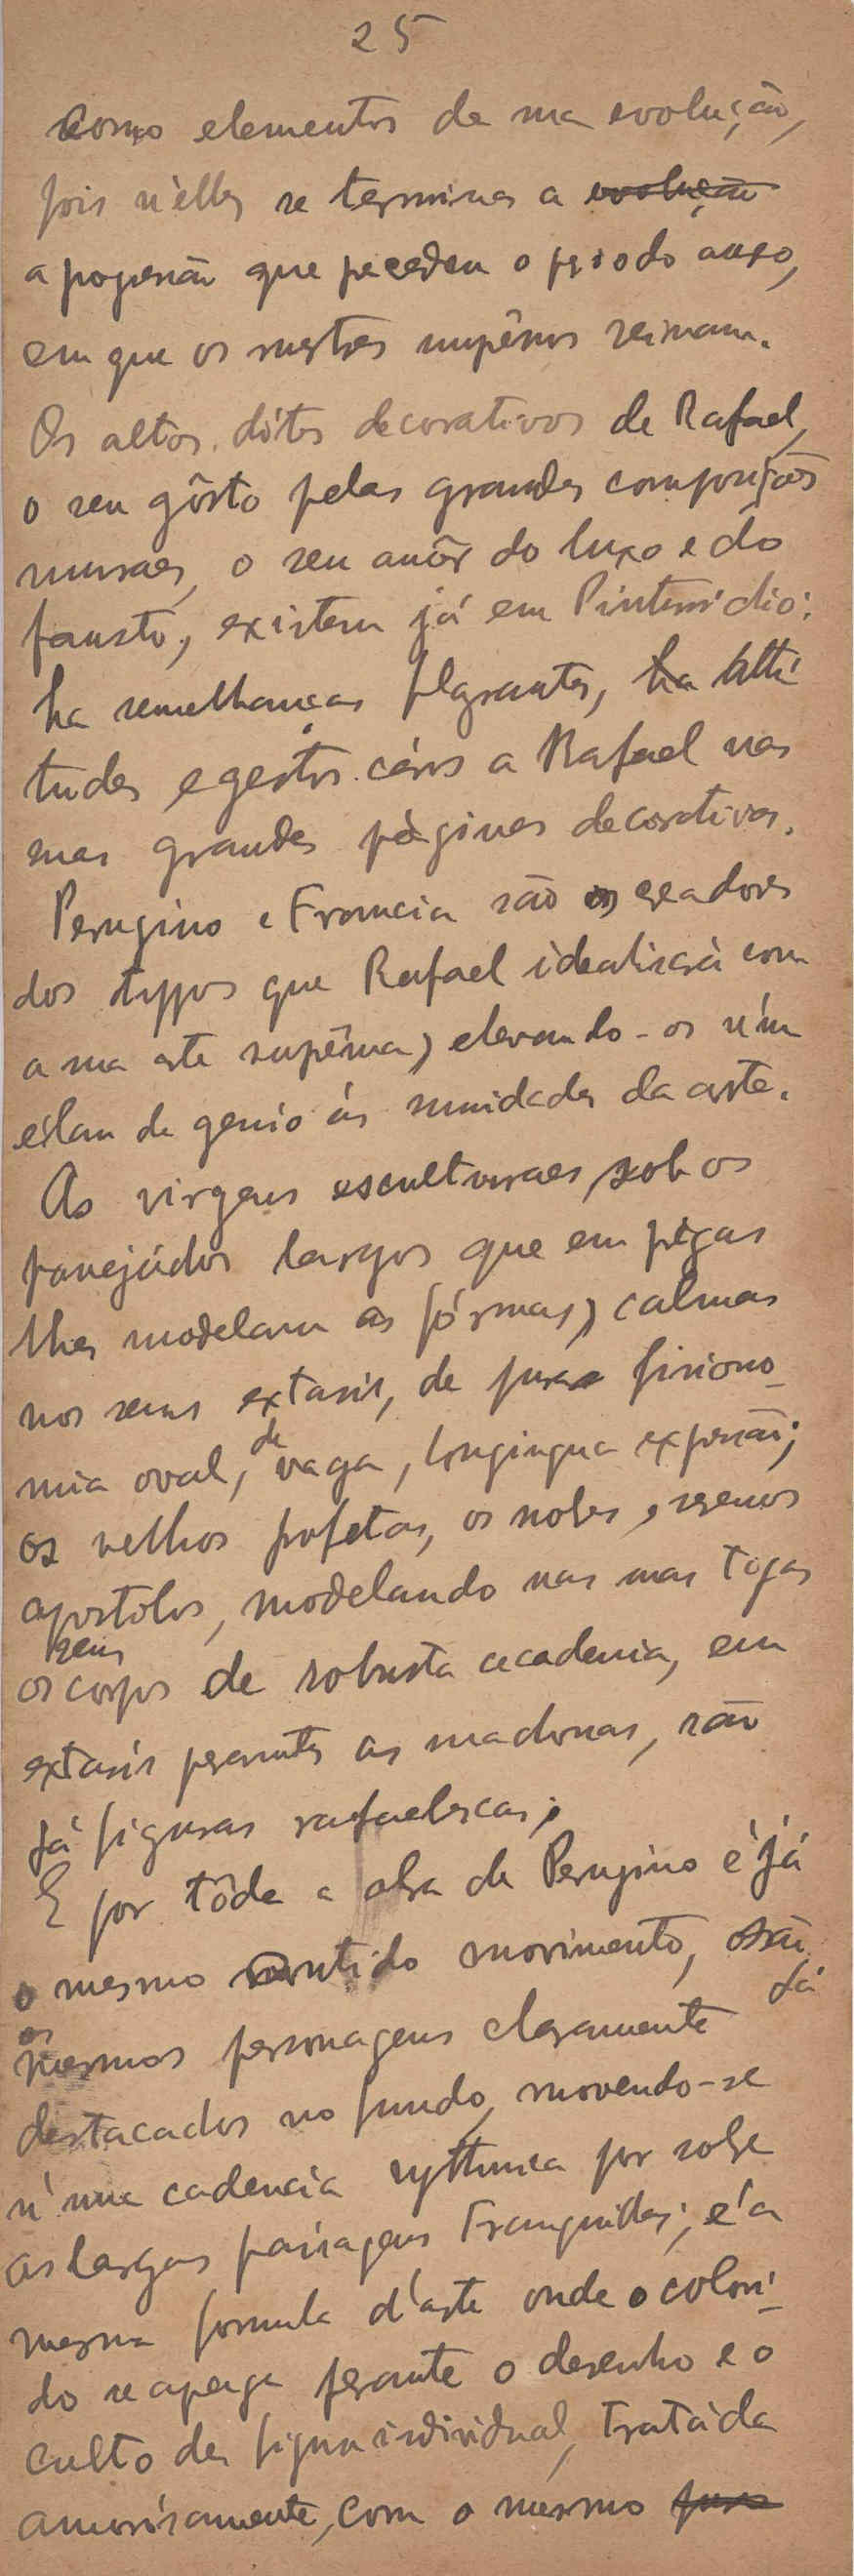 25
como elementos da sua evolução,
pois n'elles se termina a evolução
a progressão que precedeu o periodo aureo,
em que os mestres suprêmos reinam.
Os altos dótes decorativos de Rafael,
o seu gôsto pelas grandes composições
muraes, o seu amôr do luxo e do
fausto, existem já em Pinturicchio:
ha semelhanças flagrantes, ha atti-
tudes e gestos cáros a Rafael nas
suas grandes páginas decorativas.
Perugino e Francia são os creadores
dos typos que Rafael idealisará com
a sua arte suprêma, elevando-os n'um
élan de genio ás sumidades da arte.
As virgens esculturaes, sob os
panejádos largos que em prégas
lhes modelam as fórmas, calmas
nos seus extasis, de pura fisiono-
mia oval, de vaga, longinqua expressão;
os velhos profetas, os nobres e serenos
apostolos, modelando nas suas togas
os seus corpos de robusta academia, em
extasis perante as madonas, são
já figuras rafaelescas;
E por tôda a obra de Perugino é já
o mesmo sentido movimento, são já
os mesmos personagens claramente
destacados no fundo, movendo-se
n'uma cadencia rythmica por sobre
as largas paisagens tranquillas; é a
mesma formula d'arte onde o colori-
do se apaga perante o desenho e o
culto da figura individual, tratáda
amorósamente, com o mesmo pura